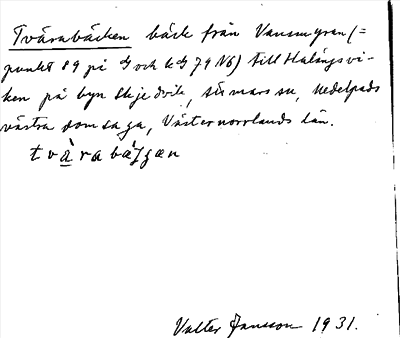 Tvärabäcken bäck från Vansmyren (=
punkt 89 på G och k G 79 V6) till Halängsvi-
ken på byn Skjedvik, Stwars sn, Medelpads
västra domsaga, Västernorrlands län.
tvàrabäggen
Valter Jansson 1931.